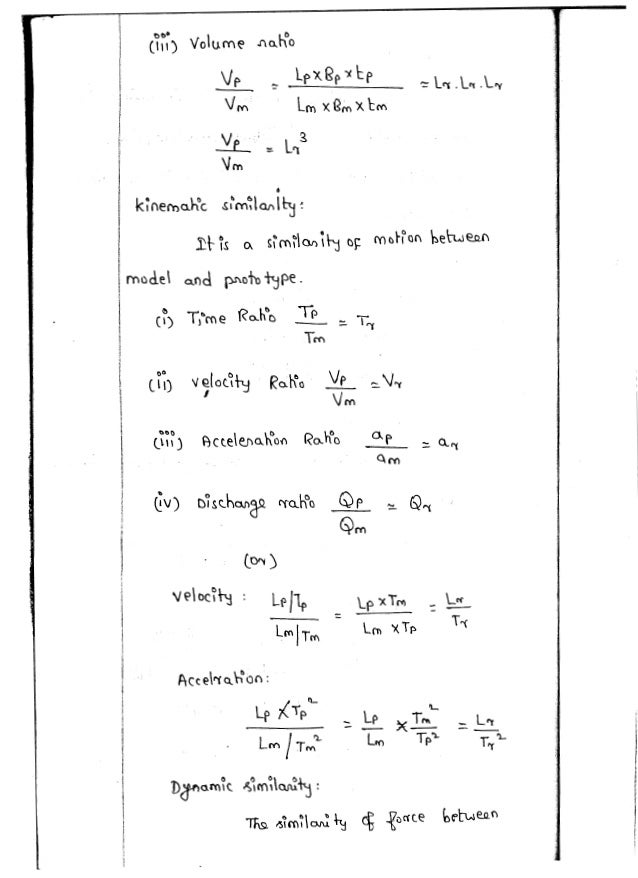 (iii) Volume ratio
Vp/Vm = Lp x Bp x tp / Lm x Bm x tm = Lr . Lr . Lr
Vp/Vm = Lr³
kinematic similarity:
It is a similarity of motion between
model and prototype.
(i) Time Ratio Tp/Tm = Tr
(ii) velocity Ratio Vp/Vm = Vr
(iii) Acceleration Ratio ap/am = ar
(iv) Discharge ratio Qp/Qm = Qr
(or)
velocity : Lp/Tp / Lm/Tm = Lp x Tm / Lm x Tp = Lr/Tr
Accelration:
Lp / Tp² / Lm / Tm² = Lp/Lm x Tm²/Tp² = Lr/Tr²
Dynamic similarity:
The similarity of force between